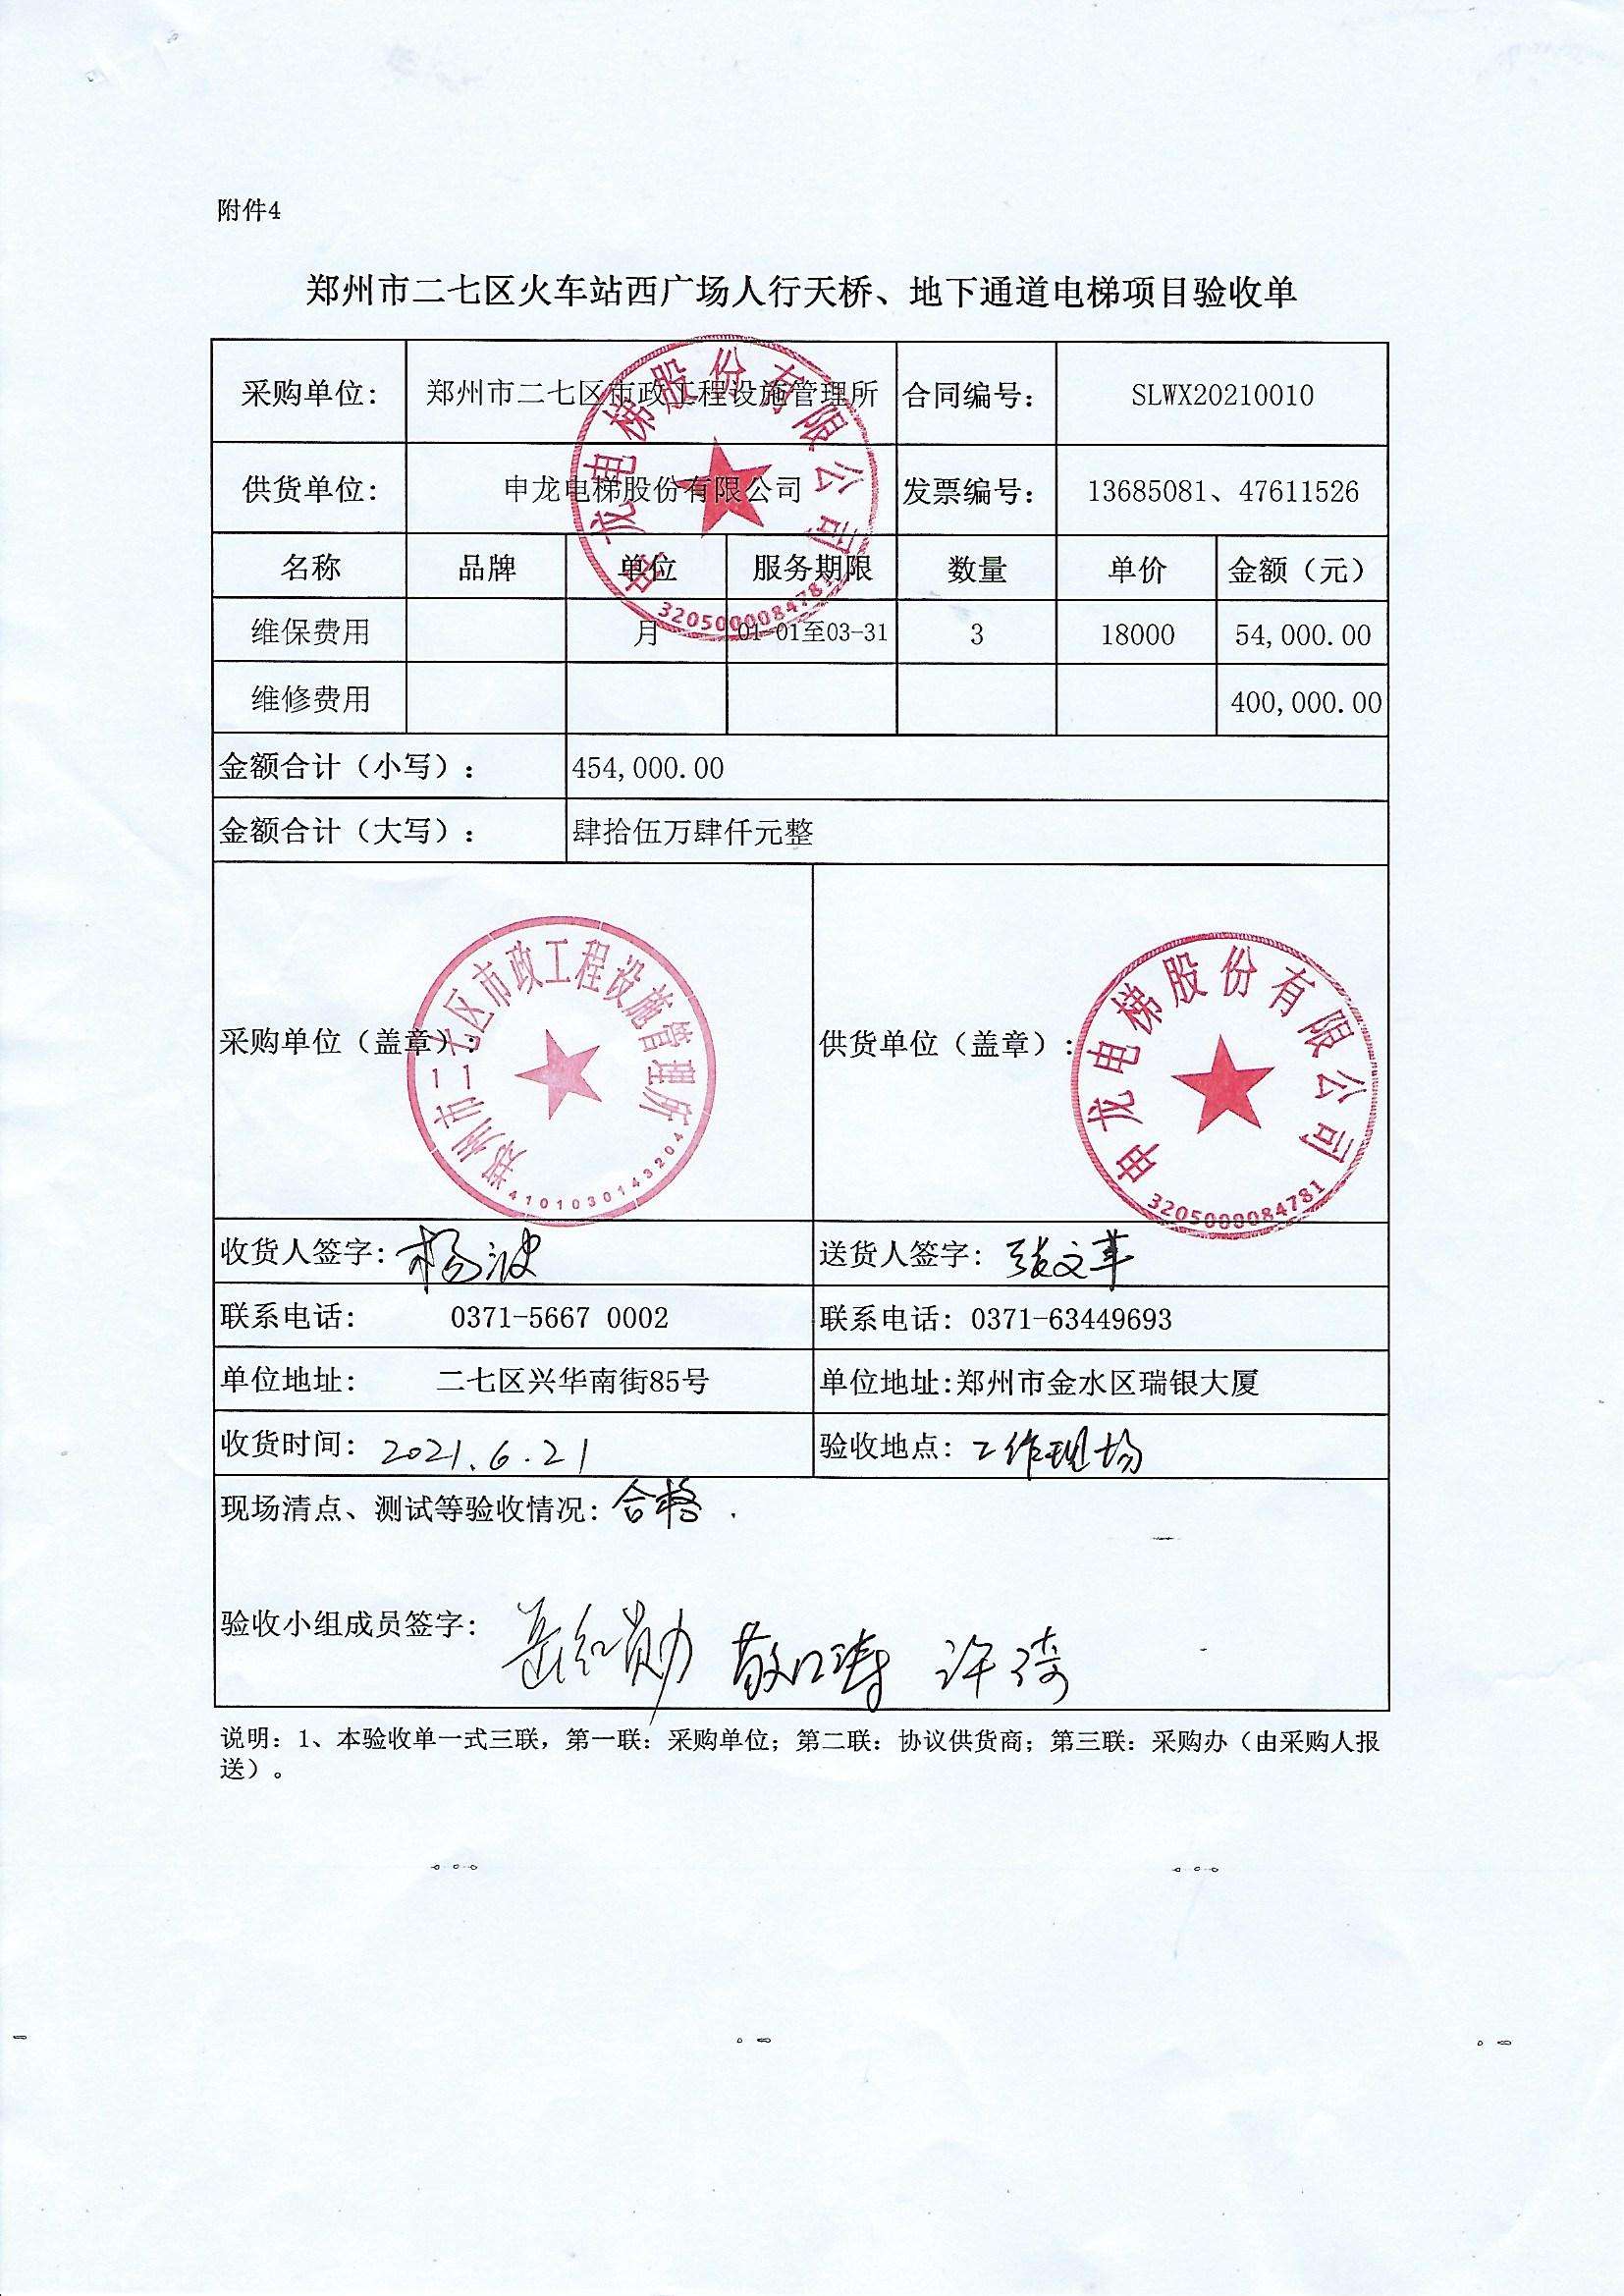 附件4
郑州市二七区火车站西广场人行天桥、地下通道电梯项目验收单
采购单位: 郑州市二七区市政工程设施管理所 合同编号: SLWX20210010
供货单位: 申龙电梯股份有限公司 发票编号: 13685081、47611526
名称 品牌 单位 服务期限 数量 单价 金额（元）
维保费用 月 01-01至03-31 3 18000 54,000.00
维修费用 400,000.00
金额合计（小写）: 454,000.00
金额合计（大写）: 肆拾伍万肆仟元整
申龙电梯股份有限公司
3205000084781
采购单位（盖章）: 供货单位（盖章）:
郑州市二七区市政工程设施管理所
4101030143204
申龙电梯股份有限公司
3205000084781
收货人签字: 杨波 送货人签字: 张文革
联系电话: 0371-5667 0002 联系电话: 0371-63449693
单位地址: 二七区兴华南街85号 单位地址:郑州市金水区瑞银大厦
收货时间: 2021.6.21 验收地点: 工作现场
现场清点、测试等验收情况: 合格.
验收小组成员签字: 许琦
说明: 1、本验收单一式三联，第一联: 采购单位; 第二联: 协议供货商; 第三联: 采购办（由采购人报
送）。